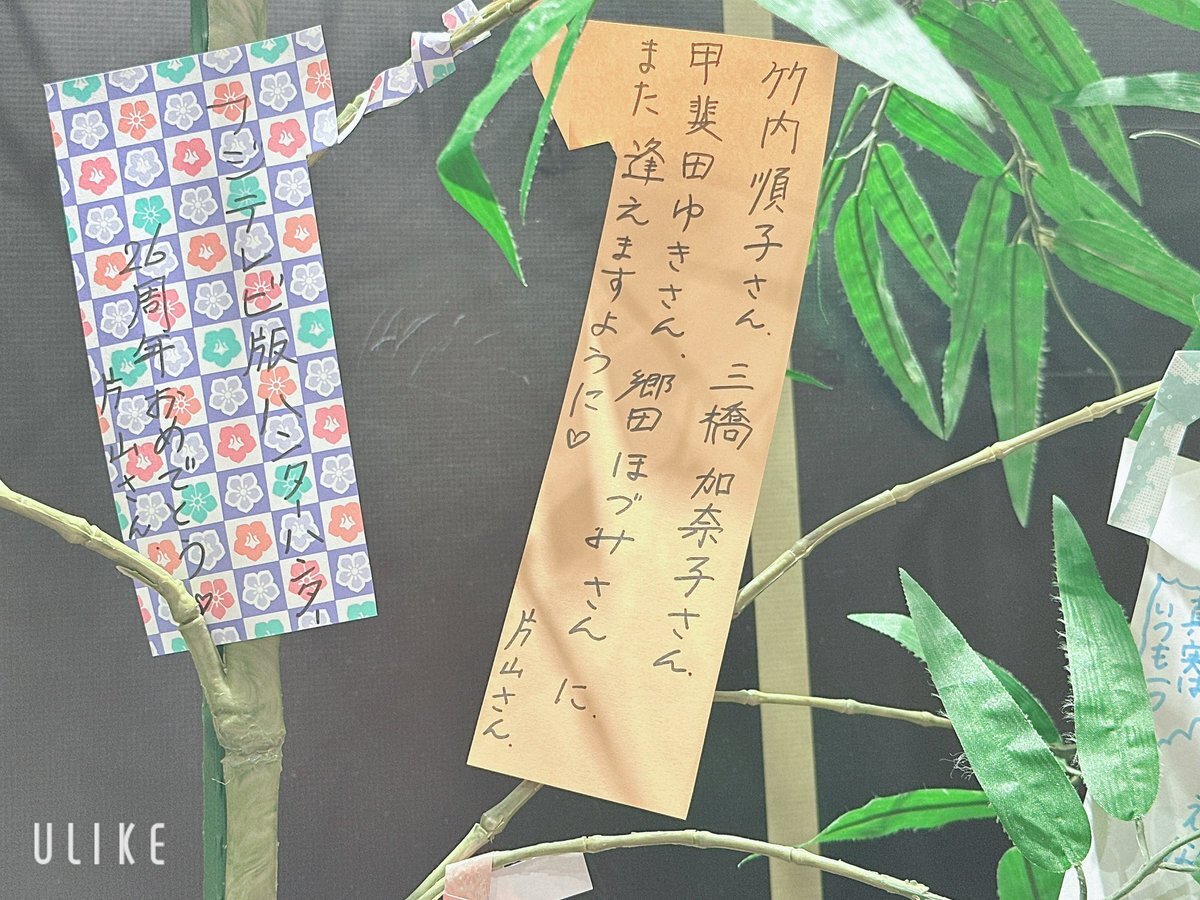 竹内順子さん、三橋加奈子さん、
甲斐田ゆきさん、郷田ほづみさんに、
また逢えますように♡
片山さん、
フジテレビ版ハンターハンター
26周年おめでとう♡
片山さん
真実は
いつも一つ
ULIKE